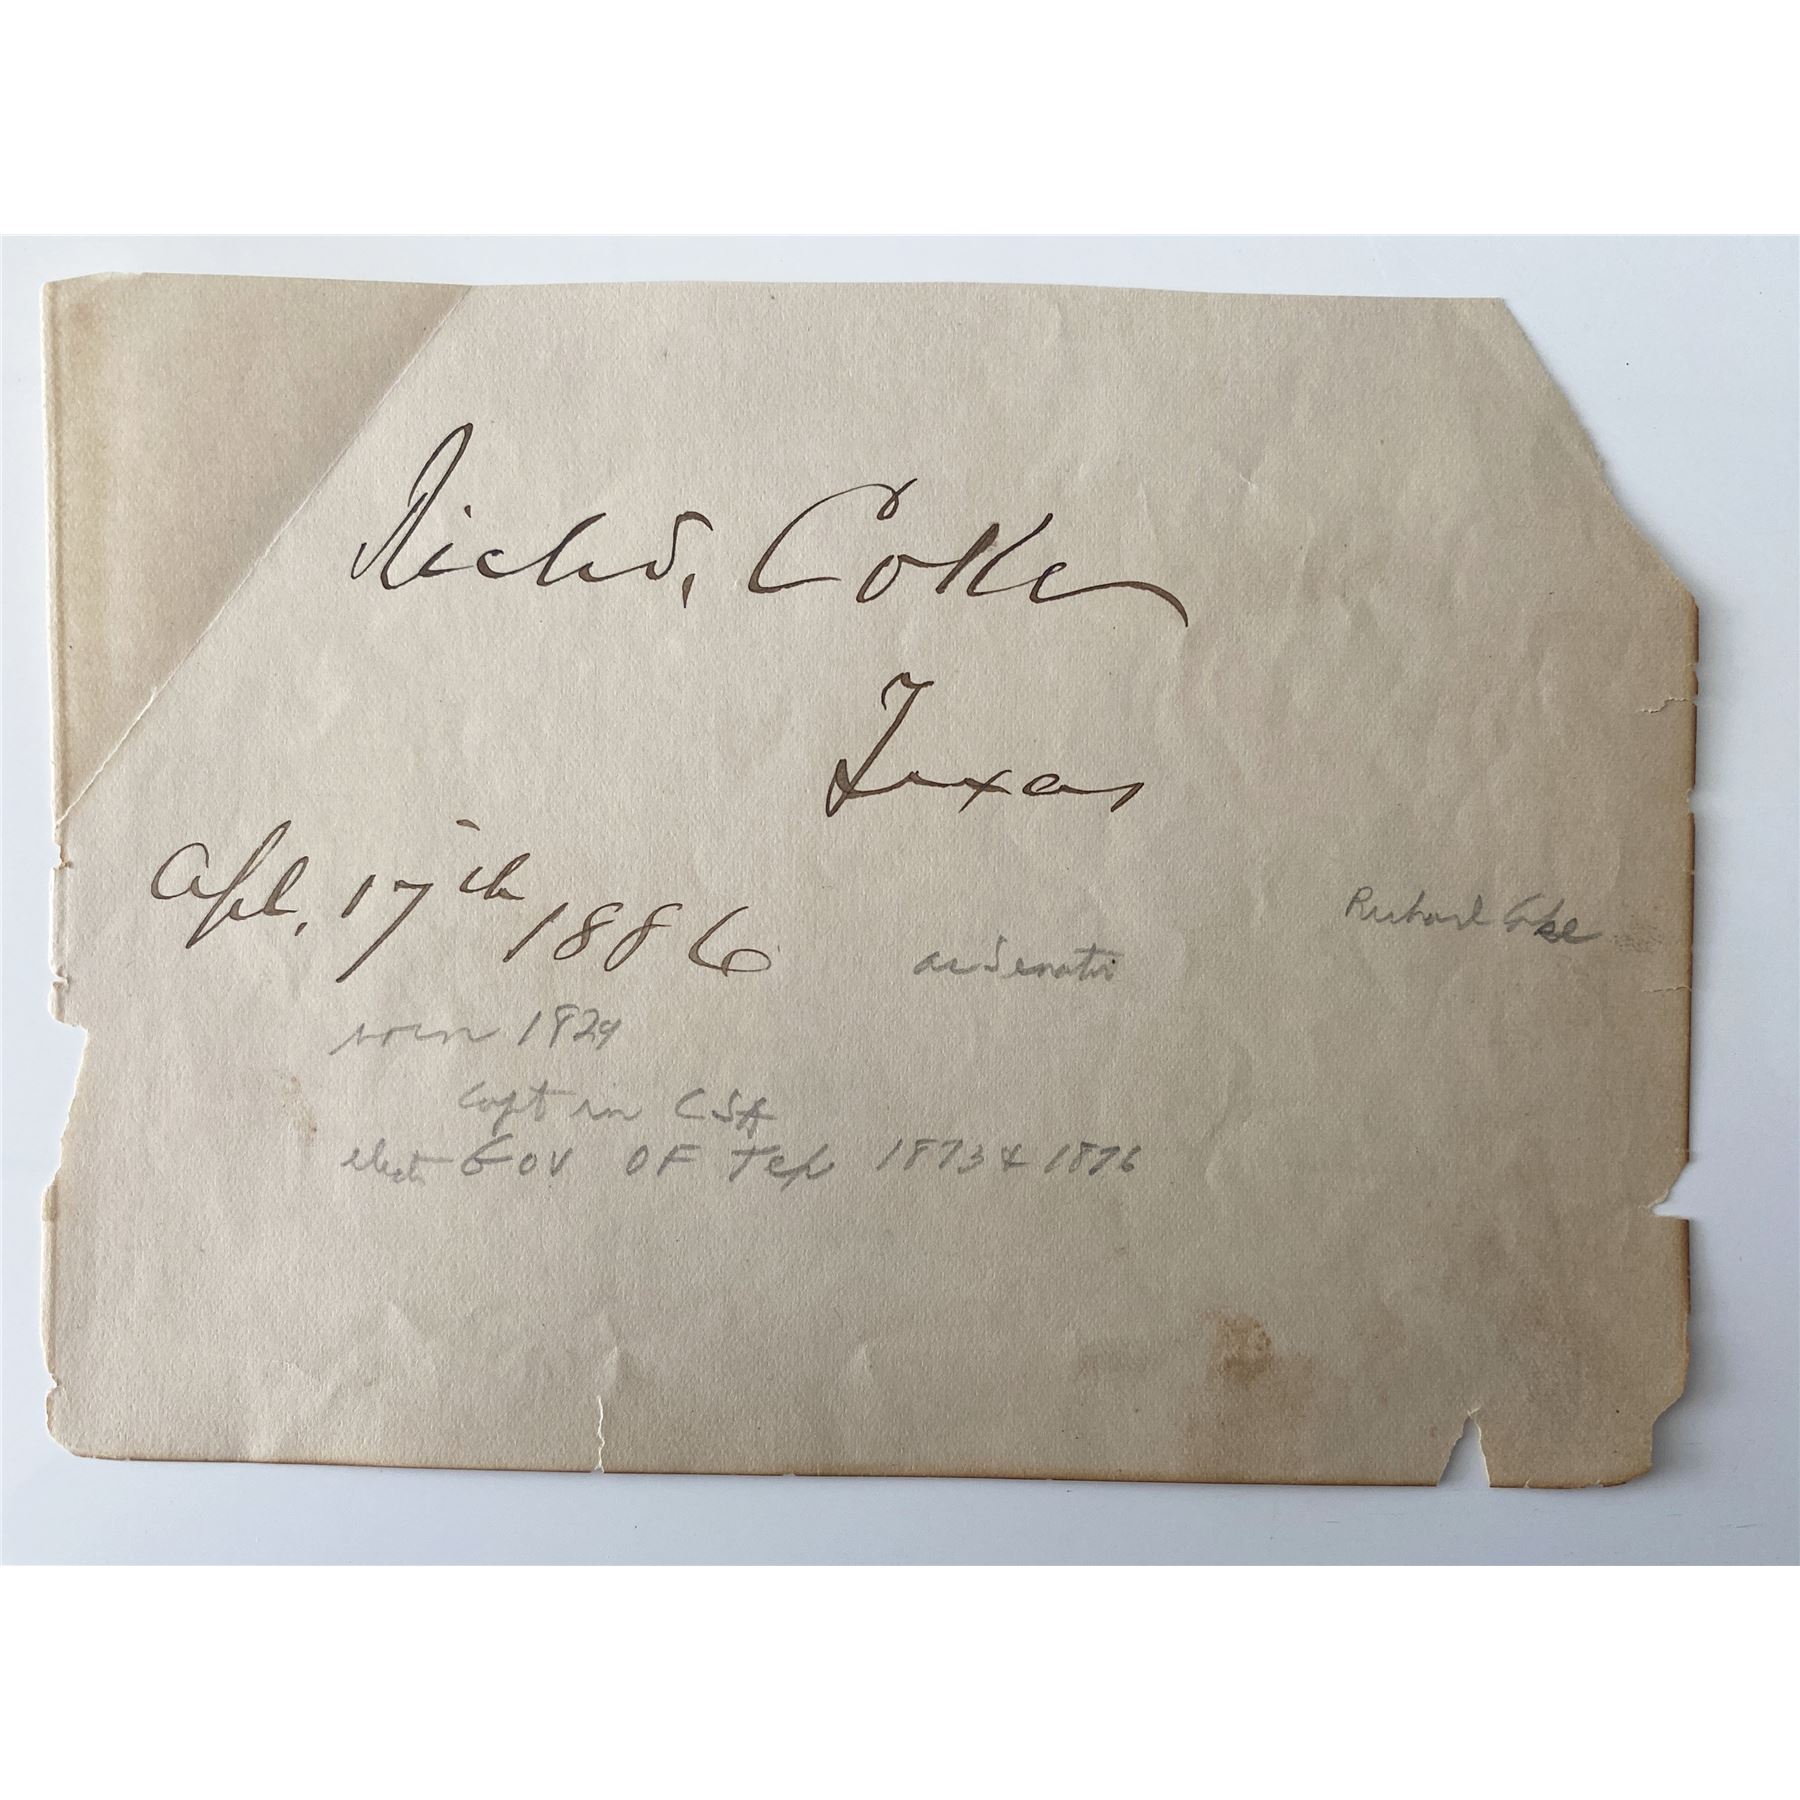 Richd, Coke
Texas
Apl, 17th 1886
Richard Coke
as Senator
born 1829
Capt in CSA
elected Gov OF Tex 1873 & 1876